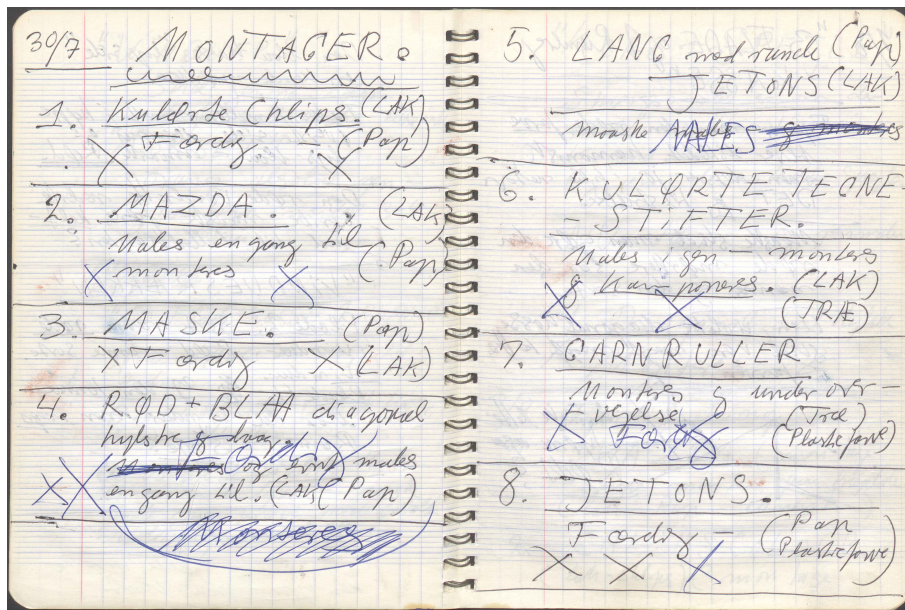 30/7 MONTAGER.
1. Kulørte Chlips. (LAK)
X Færdig - (Pap)
X
2. MAZDA. (LAK)
Males en gang til (Pap)
X monteres X
3. MASKE. (Pap)
X Færdig X (LAK)
4. RØD + BLAA diagonal
hylstre og
Monteres og males
XX en gang til. (LAK (Pap)
Monteres
5. LANG med runde (Pap)
JETONS (LAK)
maaske MALES og monteres
6. KULØRTE TEGNE-
- STIFTER.
Males igen - monteres
g Kom poneres. (LAK)
X X (TRÆ)
7. GARNRULLER
Monteres g under over-
vejelse (Træ)
X Færdig X (Plasticfarve)
8. JETONS.
Færdig - (Pap
Plasticfarve)
X X X